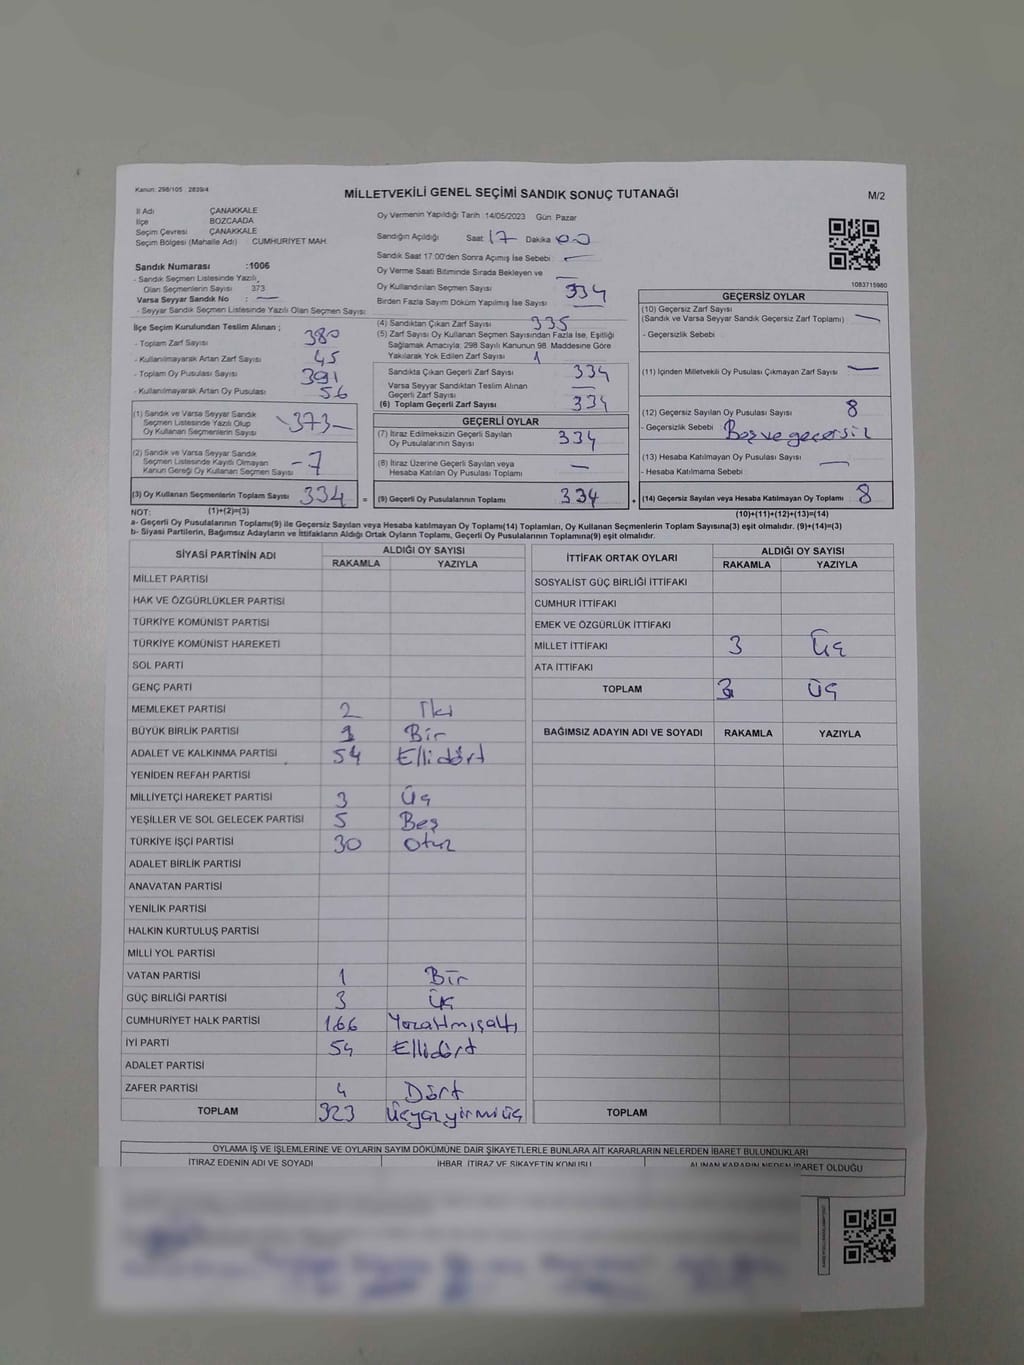 Kanun: 298/105 2839/4
MİLLETVEKİLİ GENEL SEÇİMİ SANDIK SONUÇ TUTANAĞI
M/2
İl Adı ÇANAKKALE
İlçe BOZCAADA
Seçim Çevresi ÇANAKKALE
Seçim Bölgesi (Mahalle Adı) CUMHURİYET MAH.
Sandık Numarası :1006
- Sandık Seçmen Listesinde Yazılı
Olan Seçmenlerin Sayısı 373
Varsa Seyyar Sandık No : —
- Seyyar Sandık Seçmen Listesinde Yazılı Olan Seçmen Sayısı:
Oy Vermenin Yapıldığı Tarih :14/05/2023 Gün: Pazar
Sandığın Açıldığı Saat 17 Dakika 00
Sandık Saat 17:00'den Sonra Açımış İse Sebebi —
Oy Verme Saati Bitiminde Sırada Bekleyen ve —
Oy Kullandırılan Seçmen Sayısı 334
Birden Fazla Sayım Döküm Yapılmış İse Sayısı
1083715980
İlçe Seçim Kurulundan Teslim Alınan ;
- Toplam Zarf Sayısı 380
- Kullanılmayarak Artan Zarf Sayısı 45
- Toplam Oy Pusulası Sayısı 391
- Kullanılmayarak Artan Oy Pusulası 56
(1) Sandık ve Varsa Seyyar Sandık
Seçmen Listesinde Yazılı Olup
Oy Kullanan Seçmenlerin Sayısı -373-
(2) Sandık ve Varsa Seyyar Sandık
Seçmen Listesinde Kayıtlı Olmayan
Kanun Gereği Oy Kullanan Seçmen Sayısı -7
(3) Oy Kullanan Seçmenlerin Toplam Sayısı 334 =
(4) Sandıktan Çıkan Zarf Sayısı 335
(5) Zarf Sayısı Oy Kullanan Seçmen Sayısından Fazla İse, Eşitliği
Sağlamak Amacıyla: 298 Sayılı Kanunun 98. Maddesine Göre
Yakılarak Yok Edilen Zarf Sayısı 1
Sandıkta Çıkan Geçerli Zarf Sayısı 334
Varsa Seyyar Sandıktan Teslim Alınan
Geçerli Zarf Sayısı —
(6) Toplam Geçerli Zarf Sayısı 334
GEÇERLİ OYLAR
(7) İtiraz Edilmeksizin Geçerli Sayılan
Oy Pusulalarının Sayısı 334
(8) İtiraz Üzerine Geçerli Sayılan veya
Hesaba Katılan Oy Pusulası Toplamı —
(9) Geçerli Oy Pusulalarının Toplamı 334 +
GEÇERSİZ OYLAR
(10) Geçersiz Zarf Sayısı
(Sandık ve Varsa Seyyar Sandık Geçersiz Zarf Toplamı) —
- Geçersizlik Sebebi
(11) İçinden Milletvekili Oy Pusulası Çıkmayan Zarf Sayısı —
(12) Geçersiz Sayılan Oy Pusulası Sayısı 8
- Geçersizlik Sebebi Boş ve geçersiz
(13) Hesaba Katılmayan Oy Pusulası Sayısı —
- Hesaba Katılmama Sebebi
(14) Geçersiz Sayılan veya Hesaba Katılmayan Oy Toplamı 8
NOT: (1)+(2)=(3) (10)+(11)+(12)+(13)=(14)
a- Geçerli Oy Pusulalarının Toplamı(9) ile Geçersiz Sayılan veya Hesaba katılmayan Oy Toplamı(14) Toplamları, Oy Kullanan Seçmenlerin Toplam Sayısına(3) eşit olmalıdır. (9)+(14)=(3)
b- Siyasi Partilerin, Bağımsız Adayların ve İttifakların Aldığı Ortak Oyların Toplamı, Geçerli Oy Pusulalarının Toplamına(9) eşit olmalıdır.
SİYASİ PARTİNİN ADI ALDIĞI OY SAYISI
RAKAMLA YAZIYLA
MİLLET PARTİSİ
HAK VE ÖZGÜRLÜKLER PARTİSİ
TÜRKİYE KOMÜNİST PARTİSİ
TÜRKİYE KOMÜNİST HAREKETİ
SOL PARTİ
GENÇ PARTİ
MEMLEKET PARTİSİ 2 İki
BÜYÜK BİRLİK PARTİSİ 1 Bir
ADALET VE KALKINMA PARTİSİ 54 Ellidört
YENİDEN REFAH PARTİSİ
MİLLİYETÇİ HAREKET PARTİSİ 3 Üç
YEŞİLLER VE SOL GELECEK PARTİSİ 5 Beş
TÜRKİYE İŞÇİ PARTİSİ 30 Otuz
ADALET BİRLİK PARTİSİ
ANAVATAN PARTİSİ
YENİLİK PARTİSİ
HALKIN KURTULUŞ PARTİSİ
MİLLİ YOL PARTİSİ
VATAN PARTİSİ 1 Bir
GÜÇ BİRLİĞİ PARTİSİ 3 Üç
CUMHURİYET HALK PARTİSİ 166 Yüzaltmışaltı
İYİ PARTİ 54 Ellidört
ADALET PARTİSİ
ZAFER PARTİSİ 4 Dört
TOPLAM 323 Üçyüzyirmiüç
İTTİFAK ORTAK OYLARI ALDIĞI OY SAYISI
RAKAMLA YAZIYLA
SOSYALİST GÜÇ BİRLİĞİ İTTİFAKI
CUMHUR İTTİFAKI
EMEK VE ÖZGÜRLÜK İTTİFAKI
MİLLET İTTİFAKI 3 Üç
ATA İTTİFAKI
TOPLAM 3 Üç
BAĞIMSIZ ADAYIN ADI VE SOYADI RAKAMLA YAZIYLA
TOPLAM
OYLAMA İŞ VE İŞLEMLERİNE VE OYLARIN SAYIM DÖKÜMÜNE DAİR ŞİKAYETLERLE BUNLARA AİT KARARLARIN NELERDEN İBARET BULUNDUKLARI
İTİRAZ EDENİN ADI VE SOYADI İHBAR, İTİRAZ VE ŞİKAYETİN KONUSU ALINAN KARARIN NEDEN İBARET OLDUĞU